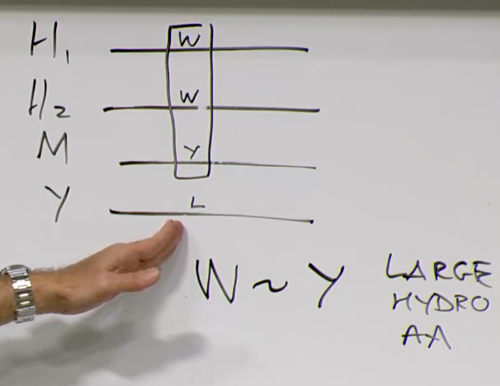 H1 W
H2 W
M Y
Y L
W ~ Y LARGE
HYDRO
AA